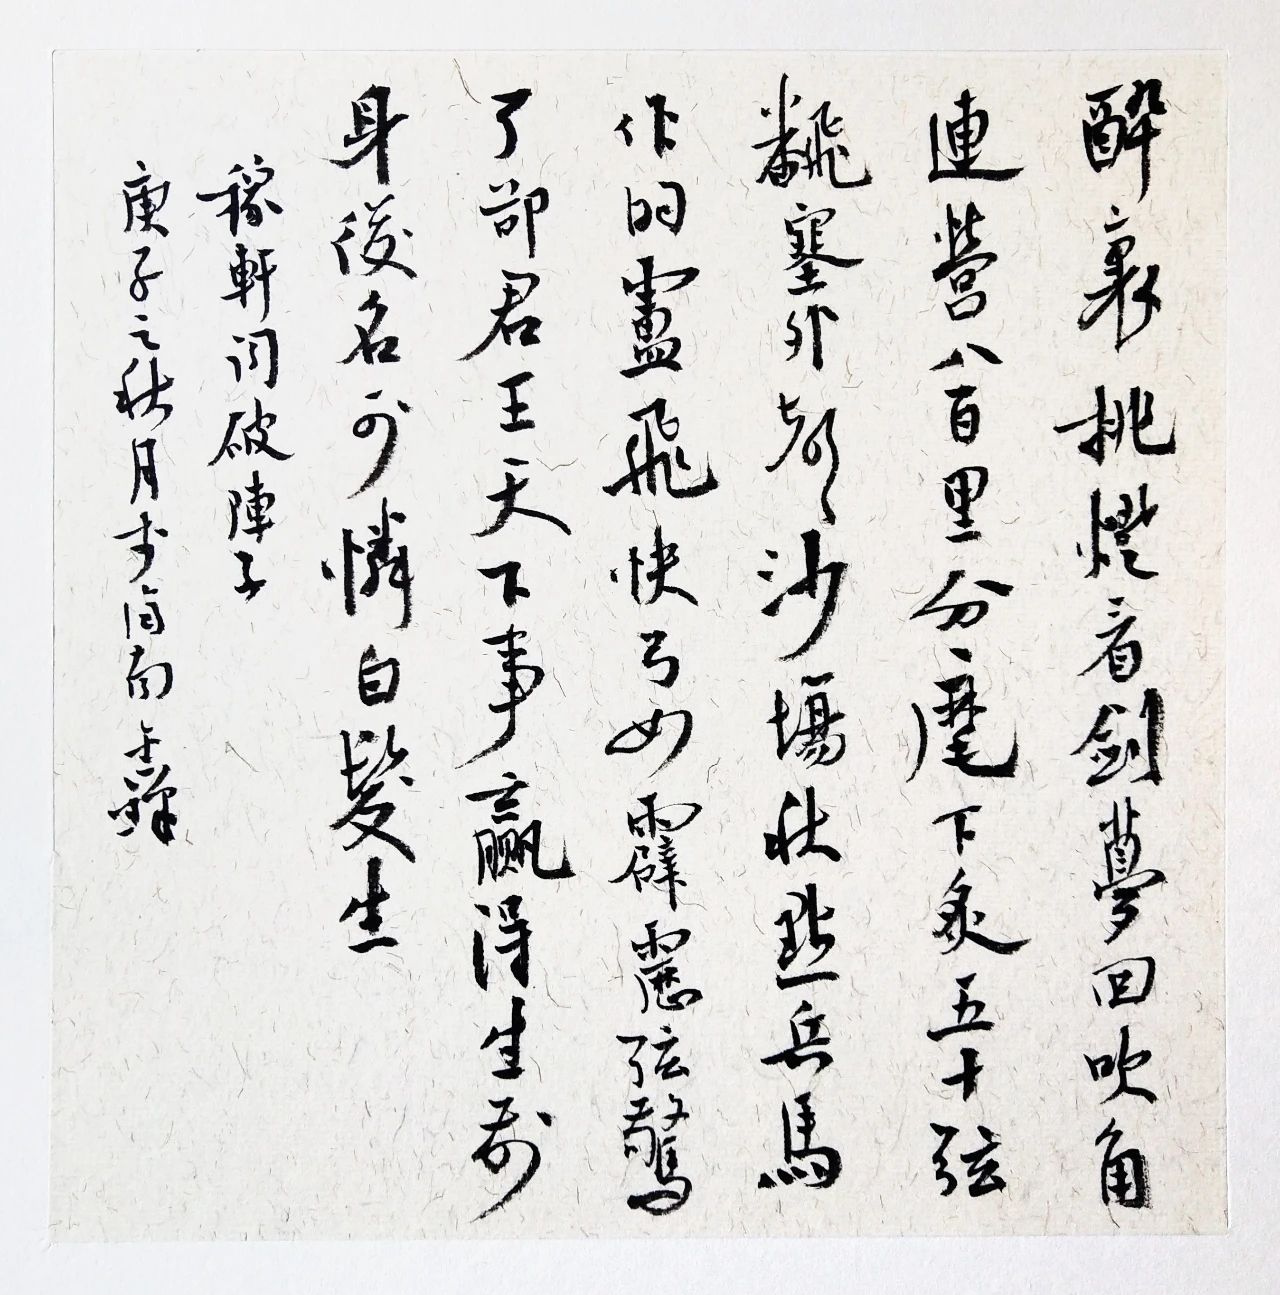 醉裏挑燈看劍夢回吹角
連營八百里分麾下炙五十弦
翻塞外聲沙場秋點兵馬
作的盧飛快弓如霹靂弦驚
了卻君王天下事贏得生前
身後名可憐白髮生
稼軒詞破陣子
庚子之秋月於滇南